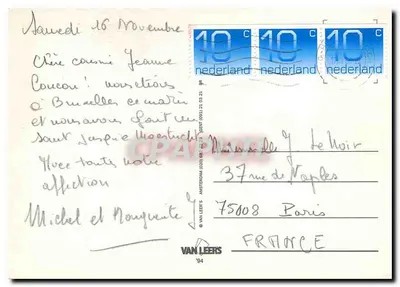 Samedi 16 Novembre
10 c 10 c 10 c
nederland nederland nederland
Chère cousine Jeanne
Coucou! nous étions
à Bruxelles ce matin
et nous avons fait un
saut jusque Maestricht
Avec toute notre
affection
Michel et Marguerite
Mademoiselle J. Le Noir
37 rue de Naples
75008 Paris
FRANCE
© VAN LEER'S AMSTERDAM
VAN LEERS
'94
CPARAMA